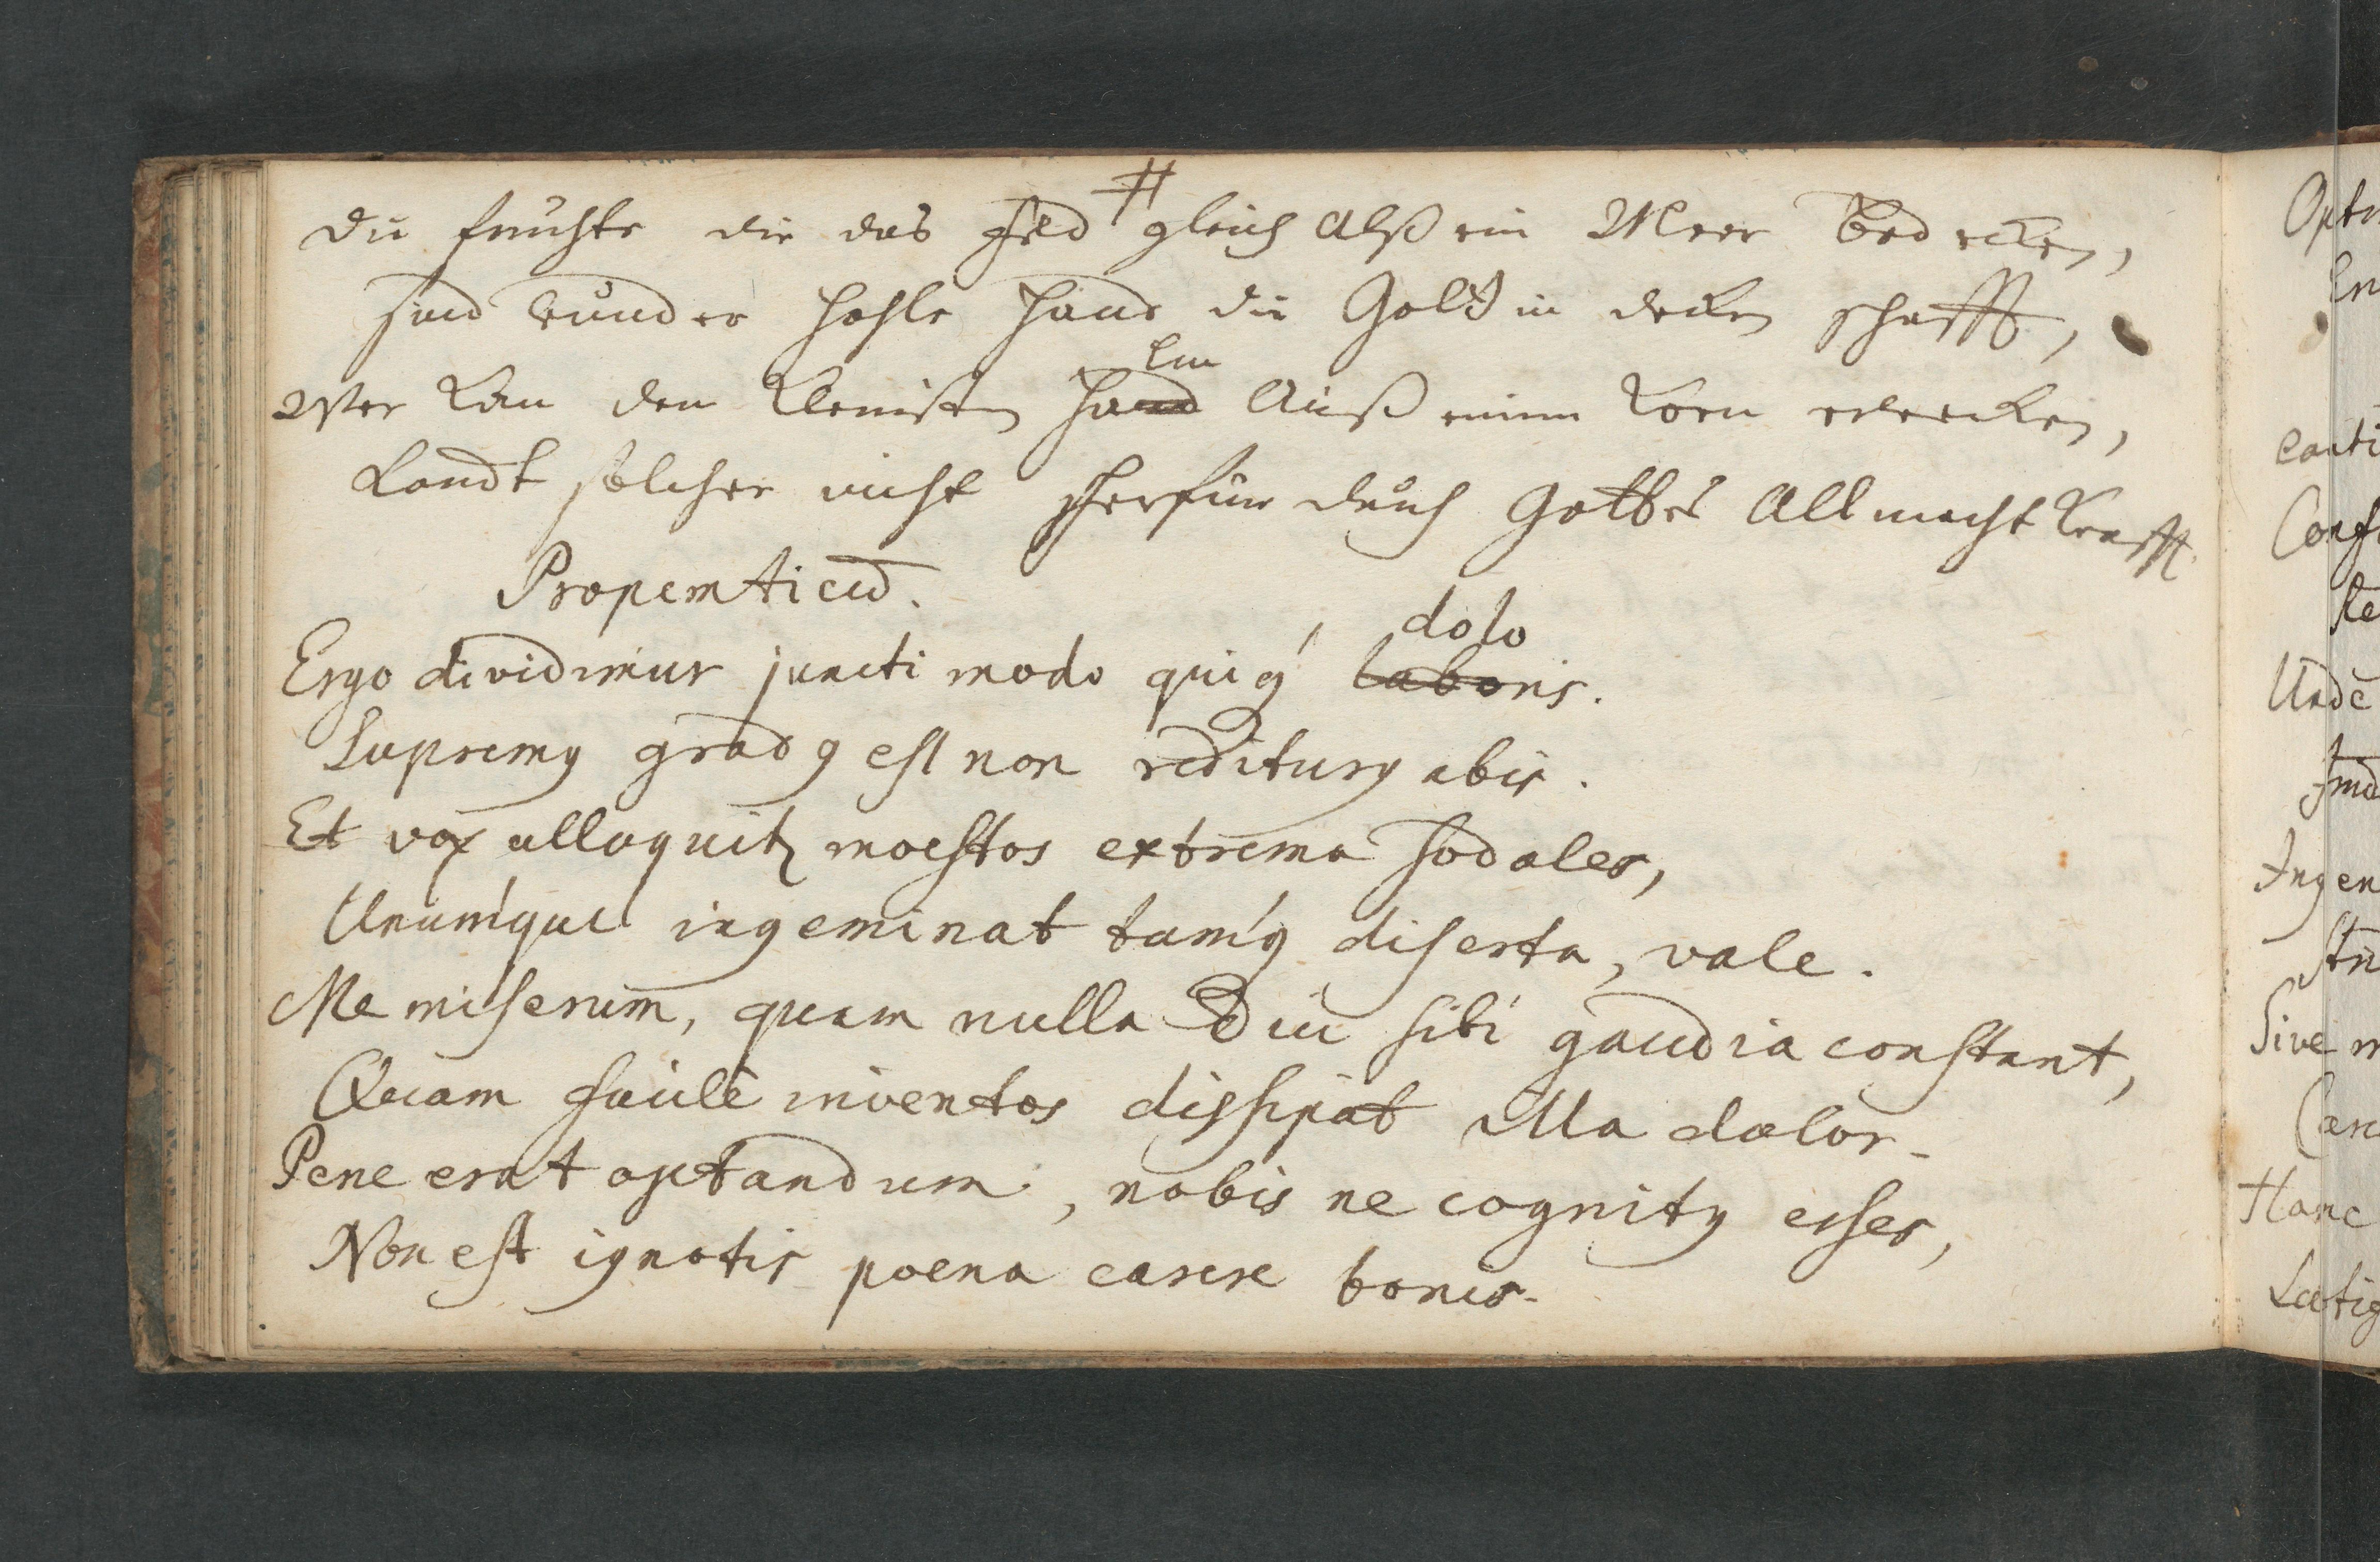 Die fruchte die das Feld # gleich Alß ein Meer Bedecken,
sind wunder hohle Hand die Gold in decken schafft,
Wer kan den kleinsten Ha̶n̶d̶ lm Auß einem Korn erwecken,
Kombt solcher nicht Herfür durch Gottes Allmacht krafft.
Propemticũ.
Ergo dividimur juncti modo quiq́ l̶a̶b̶o̶ris. dolo
Supremꝯ gradꝯ est non rediturꝯ abis.
Et vox alloquitꝛ moestos extrema sodales,
Unumq́ue ingeminat tamq́ diserta, vale.
Me miserum, quam nulla Diu sibi gaudia constant,
Quam facile inventos dissipat illa dolor.
Pene erat optandum, nobis ne cognitꝯ esses,
Non est ignotis poena carere bonis.
Opt
En
canti
Conf
Undē
Ingen
Sive m
Hanc